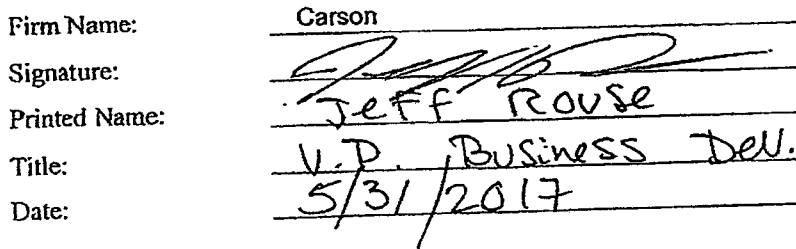 Firm Name: Carson
Signature:
Printed Name: Jeff Rouse
Title: V.P. Business Dev.
Date: 5/31/2017